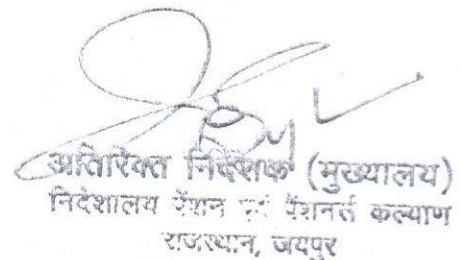 अतिरिक्त निदेशक (मुख्यालय)
निदेशालय पेंशन एवं पेंशनर्स कल्याण
राजस्थान, जयपुर